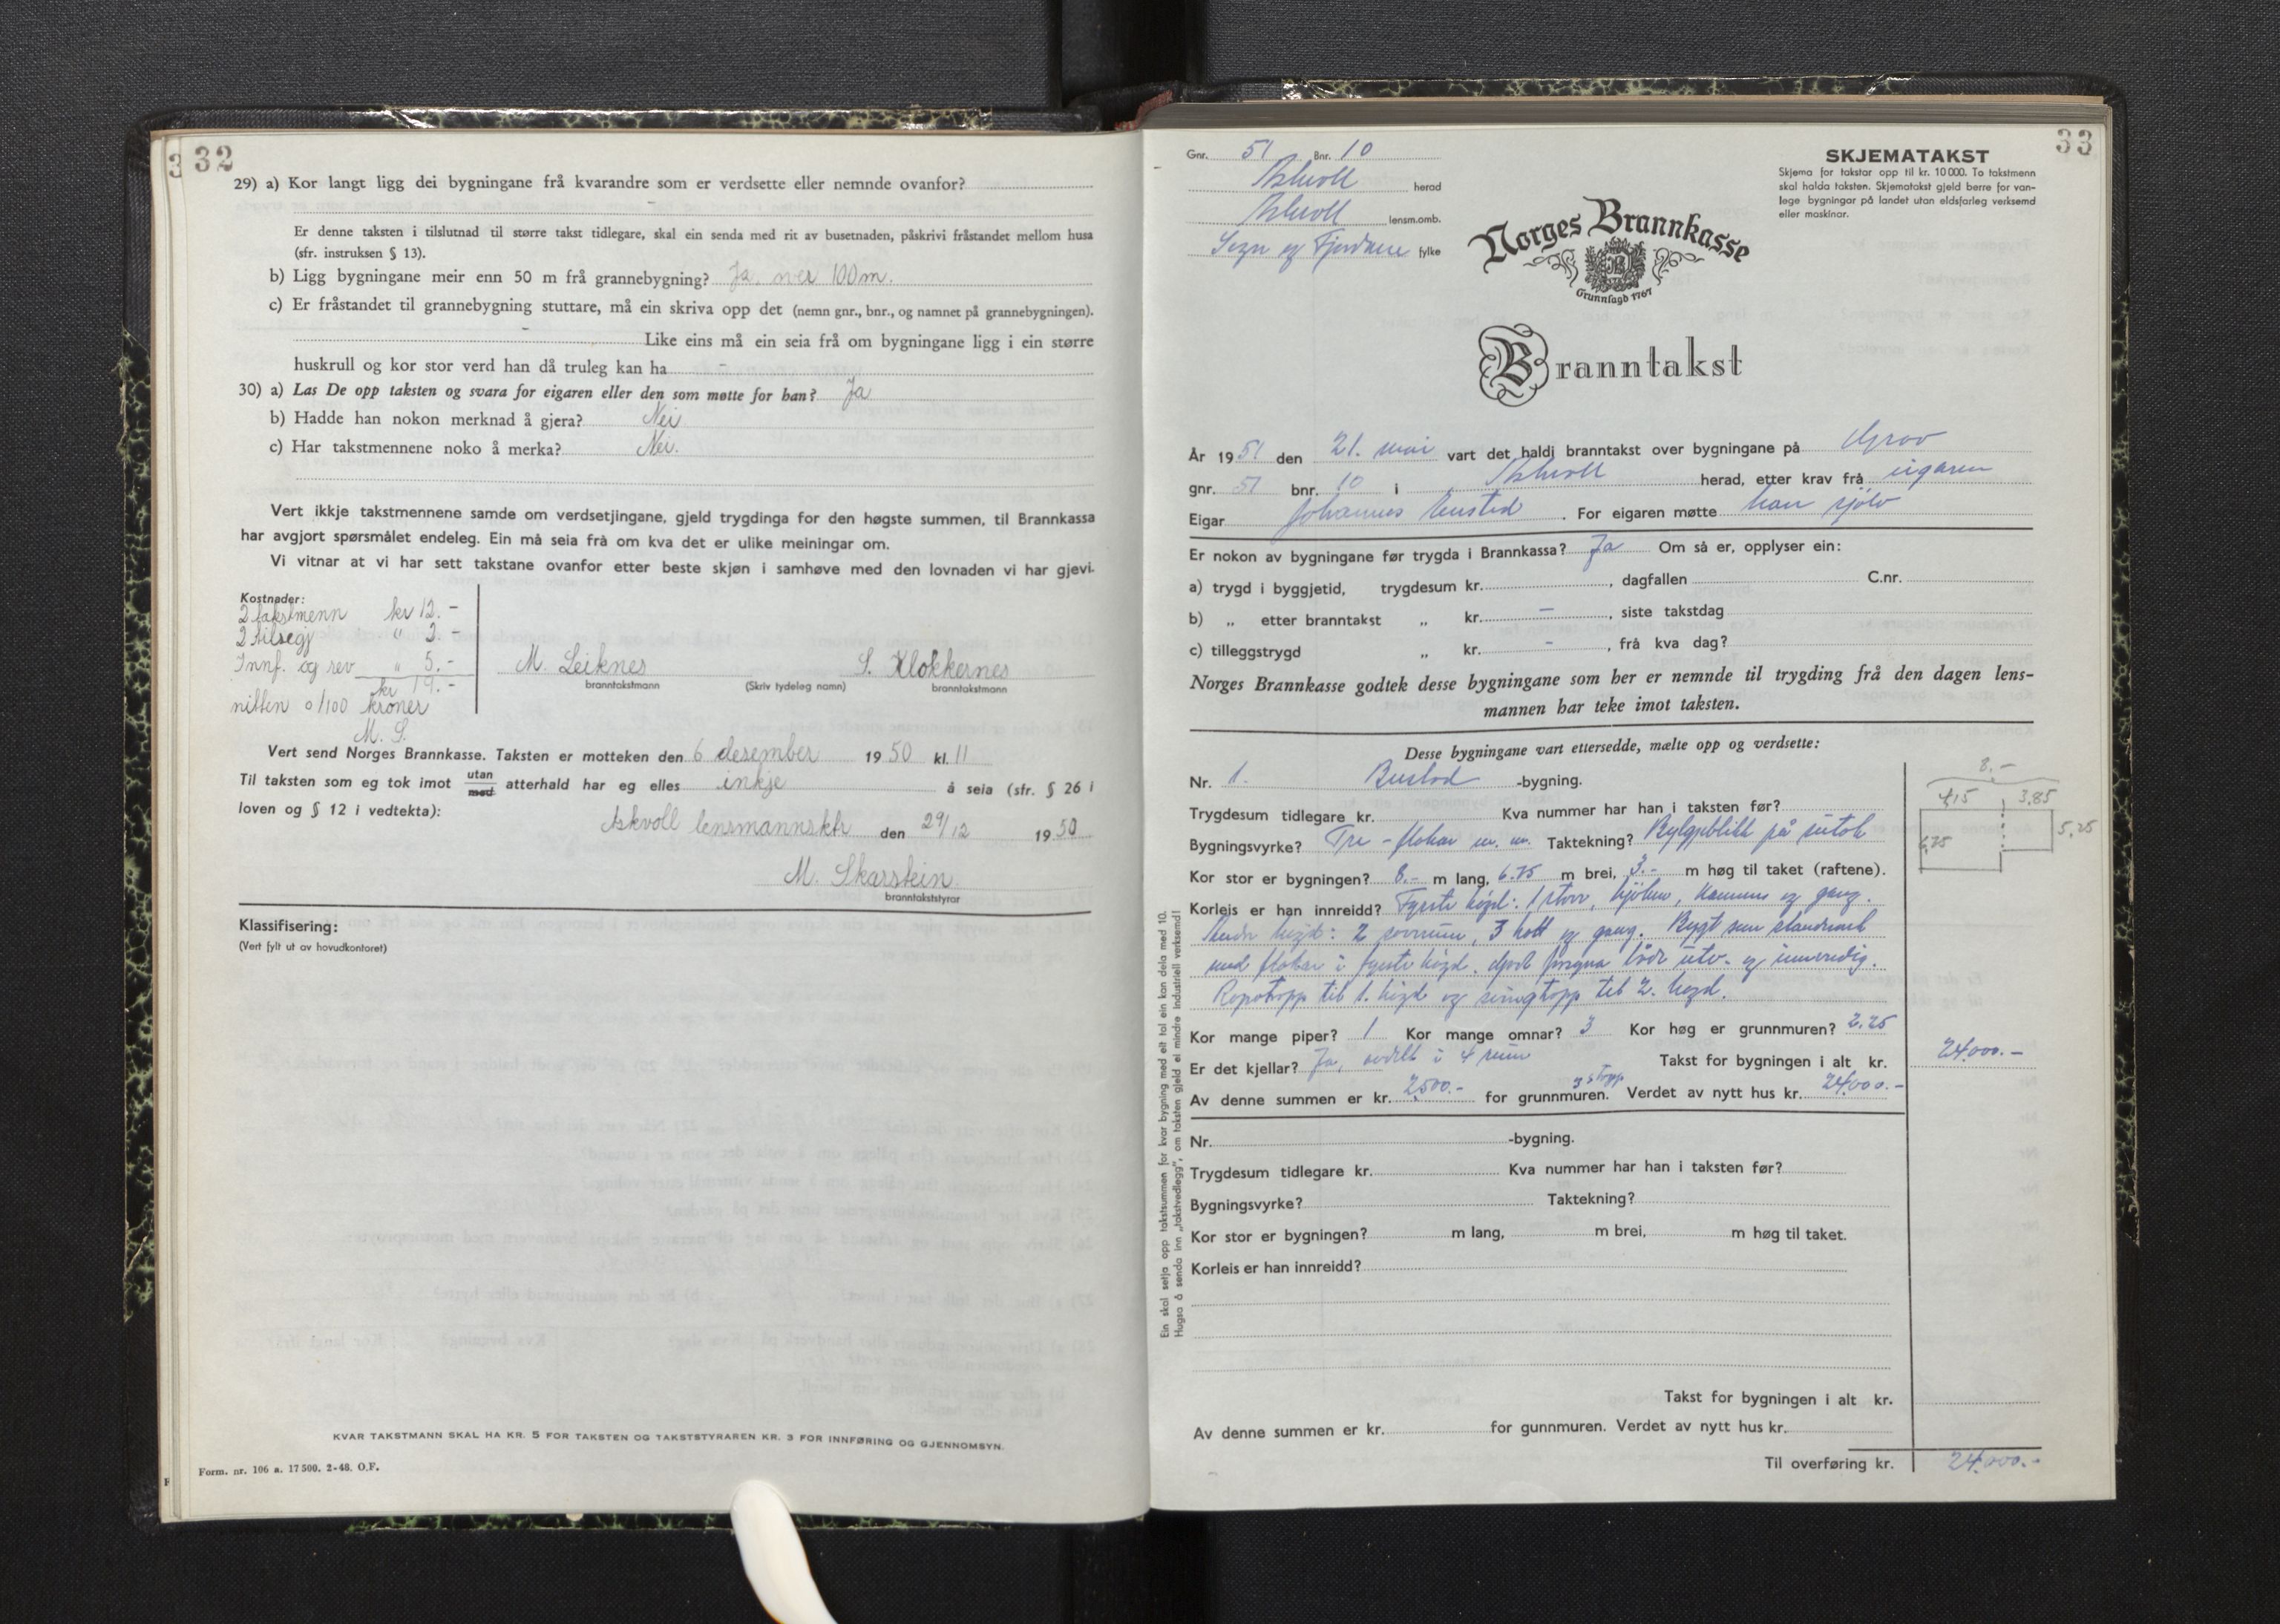 32
29) a) Kor langt ligg dei bygningane frå kvarandre som er verdsette eller nemnde ovanfor?
Er denne taksten i tilslutnad til større takst tidlegare, skal ein senda med rit av busetnaden, påskrivi fråstandet mellom husa
(sfr. instruksen § 13).
b) Ligg bygningane meir enn 50 m frå grannebygning? Ja, over 100 m.
c) Er fråstandet til grannebygning stuttare, må ein skriva opp det (nemn gnr., bnr., og namnet på grannebygningen).
- Like eins må ein seia frå om bygningane ligg i ein større
huskrull og kor stor verd han då truleg kan ha -
30) a) Las De opp taksten og svara for eigaren eller den som møtte for han? Ja
b) Hadde han nokon merknad å gjera? Nei
c) Har takstmennene noko å merka? Nei.
Vert ikkje takstmennene samde om verdsetjingane, gjeld trygdinga for den høgste summen, til Brannkassa
har avgjort spørsmålet endeleg. Ein må seia frå om kva det er ulike meiningar om.
Vi vitnar at vi har sett takstane ovanfor etter beste skjøn i samhøve med den lovnaden vi har gjevi.
Kostnader:
2 takstmenn kr 12.-
2 tilsegj " 2.-
Innf. og rev " 5.-
kr 19.-
nitten 0/100 kroner
M. S.
M. Leiknes S. Klokkernes
branntakstmann (Skriv tydeleg namn) branntakstmann
Vert send Norges Brannkasse. Taksten er motteken den 6 desember 1950 kl. 11
Til taksten som eg tok imot utan med atterhald har eg elles inkje å seia (sfr. § 26 i
loven og § 12 i vedtekta):
Askvoll lensmannsktr den 29/12 1950
M. Skarstein
branntakststyrar
Klassifisering:
(Vert fylt ut av hovudkontoret)
KVAR TAKSTMANN SKAL HA KR. 5 FOR TAKSTEN OG TAKSTSTYRAREN KR. 3 FOR INNFØRING OG GJENNOMSYN.
Form. nr. 106 a. 17500. 2-48. O.F.
33
Gnr. 51 Bnr. 10
Askvoll herad
Askvoll lensm.omb.
Sogn og Fjordane fylke
SKJEMATAKST
Skjema for takstar opp til kr. 10 000. To takstmenn
skal halda taksten. Skjematakst gjeld berre for van-
lege bygningar på landet utan eldsfarleg verksemd
eller maskinar.
Norges Brannkasse
Grunnlagd 1767
Branntakst
År 1951 den 21. mai vart det haldi branntakst over bygningane på Grov
gnr. 51 bnr. 10 i Askvoll herad, etter krav frå eigaren
Eigar Johannes . For eigaren møtte han sjølv
Er nokon av bygningane før trygda i Brannkassa? Ja Om så er, opplyser ein:
a) trygd i byggjetid, trygdesum kr. , dagfallen C.nr.
b) „ etter branntakst „ kr. - , siste takstdag
c) tilleggstrygd „ kr. - , frå kva dag?
Norges Brannkasse godtek desse bygningane som her er nemnde til trygding frå den dagen lens-
mannen har teke imot taksten.
Desse bygningane vart ettersedde, mælte opp og verdsette:
Nr. 1. Bustad -bygning.
8.-
4,15 3,85
6,75 5,25
Trygdesum tidlegare kr. Kva nummer har han i taksten før?
Bygningsvyrke? Tre - flokar m. m. Taktekning? Bylgjeblikk på sutak
Kor stor er bygningen? 8.- m lang, 6.75 m brei, 3.- m høg til taket (raftene).
Korleis er han innreidd? Fyrste høgd: 1 stove, kjøken, kammers og gang.
Andre høgd: 2 soverum, 3 kott og gang. Bygt som standard
med flokar i fyrste høgd. utv. og innvendig.
til 1. høgd og svingtopp til 2. høgd.
Kor mange piper? 1 Kor mange omnar? 3 Kor høg er grunnmuren? 2.25
Er det kjellar? Ja, avdelt i 4 rum Takst for bygningen i alt kr. 24.000.-
Av denne summen er kr. 2500.- for grunnmuren. Verdet av nytt hus kr. 24.000.-
Nr. -bygning.
Trygdesum tidlegare kr. Kva nummer har han i taksten før?
Bygningsvyrke? Taktekning?
Kor stor er bygningen? m lang, m brei, m høg til taket.
Korleis er han innreidd?
Takst for bygningen i alt kr.
Av denne summen er kr. for gunnmuren. Verdet av nytt hus kr.
Til overføring kr. 24.000.-
Ein skal setja opp takstsummen for kvar bygning med eit tal ein kan dela med 10.
Hugsa å senda inn „takstvedlegg", om taksten gjeld ei mindre industriell verksemd!